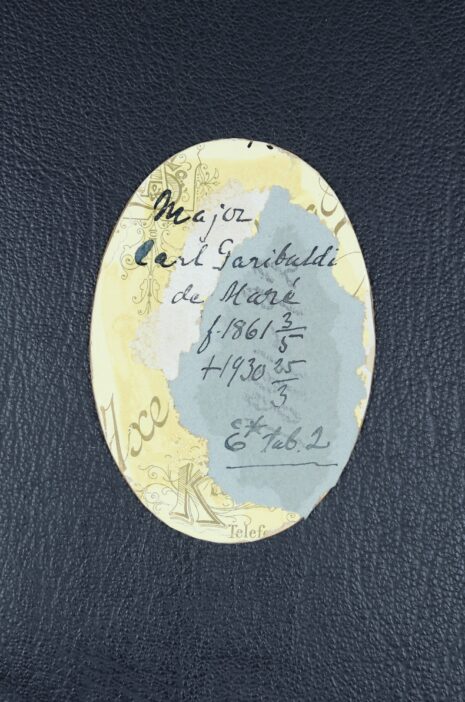 Major
Carl Garibaldi
de Maré
f. 1861 3/5
+1930 25/3
E* tab. 2
Axe
K
Telef